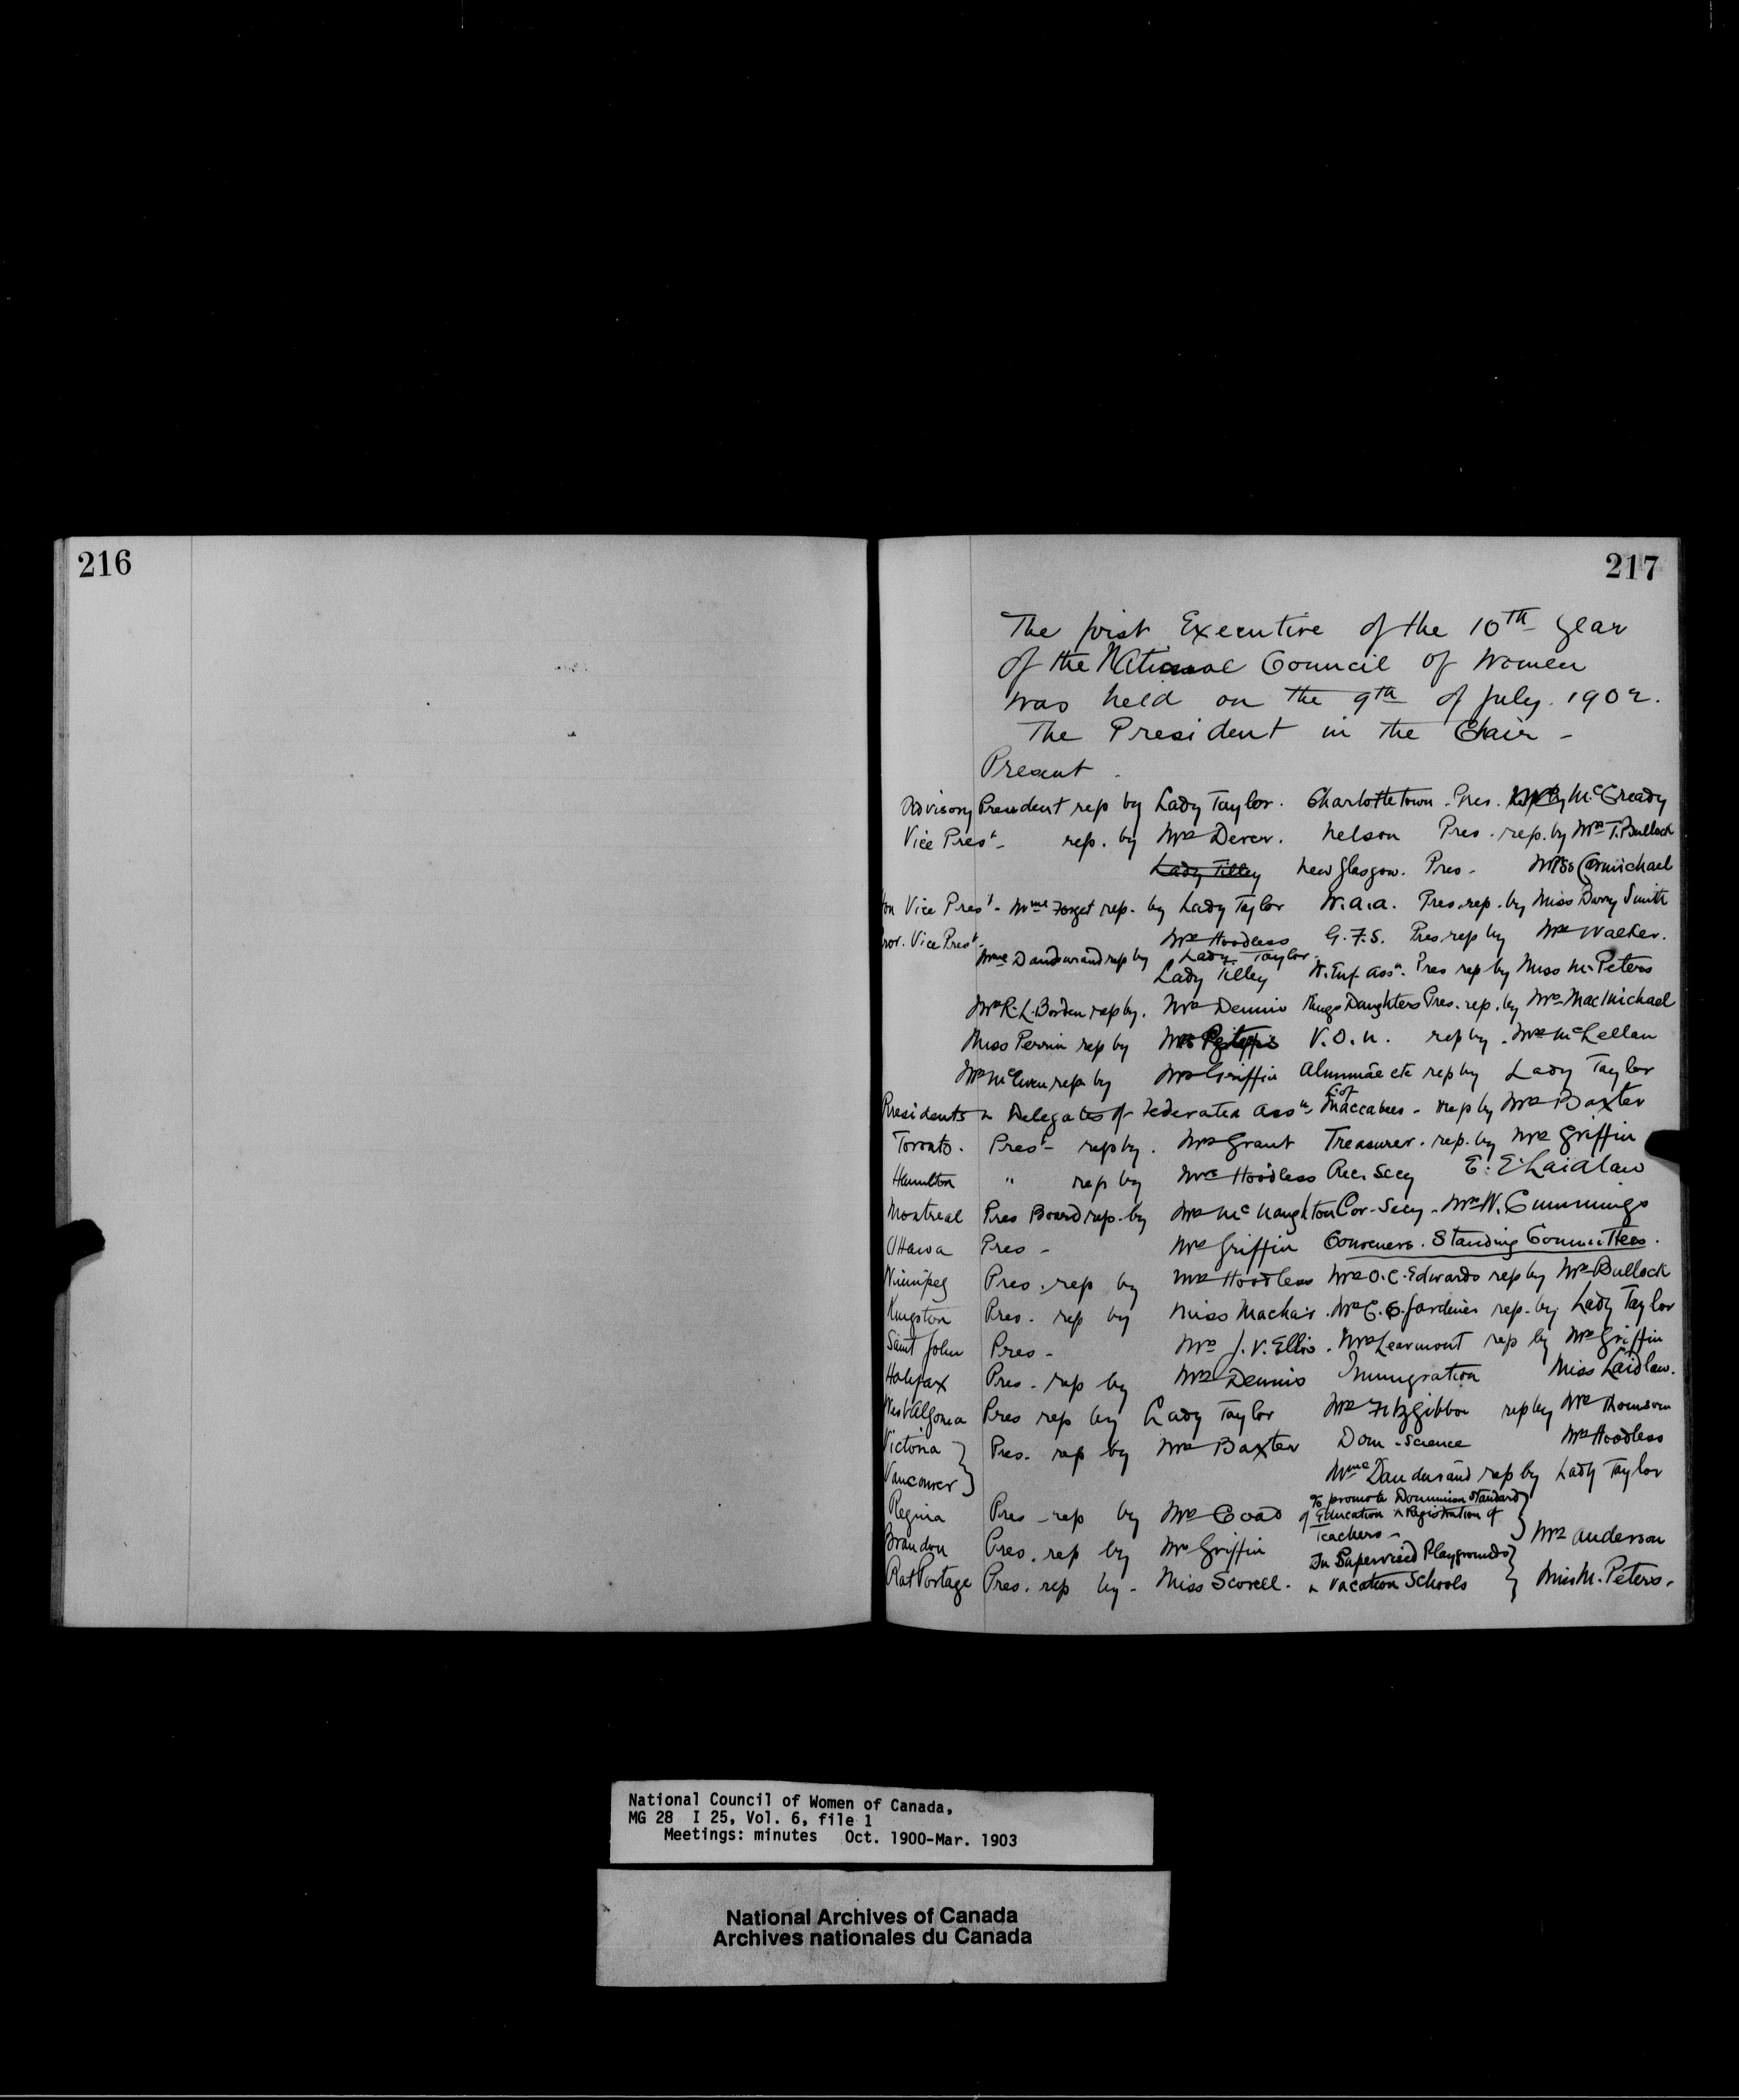 216
217
The first Executive of the 10th year
of the National Council of Women
was held on the 9th of July. 1902.
The President in the Chair -
Present -
Advisory President rep by Lady Taylor. Charlottetown - Pres. Rep by McCready
Vice Prest - rep. by Mrs Dever. Nelson Pres. rep. by Mrs T. Bullock
Lady Tilley New Glasgow. Pres - Miss Carmichael
Hon Vice Prest - Mme Forget rep. by Lady Taylor W.A.A. Pres. rep. by Miss Barry Smith
Prov. Vice Prest - Mrs Hoodless G.F.S. Pres. rep by Mrs Walker.
Mme Dandurand rep by Lady Taylor.
Lady Tilley W. Enf. Assn. Pres rep by Miss M. Peters
Mrs R. L. Borden rep by. Mrs Dennis Kings Daughters Pres. rep. by Mrs MacMichael
Miss Perrin rep by V.O.N. rep by. Mrs McLellan
Mrs McEwen rep by Mrs Griffin Alumnae etc rep by Lady Taylor
Presidents & Delegates of Federated Assn. L. of Maccabees - rep by Mrs Baxter
Toronto. Prest - rep by. Mrs Grant Treasurer. rep. by Mrs Griffin
Hamilton " rep by Mrs Hoodless Rec. Secy E. E. Laidlaw
Montreal Pres Board rep. by Mrs McNaughton Cor-Secy - Mrs W. Cummings
Ottawa Pres - Mrs Griffin Conveners. Standing Committees.
Winnipeg Pres. rep by Mrs Hoodless Mrs O. C. Edwards rep by Mrs Bullock
Kingston Pres. rep by Miss Machar. Mrs C. E. Gardiner rep. by Lady Taylor
Saint John Pres - Mrs J. V. Ellis. Mrs Learmont rep by Mrs Griffin
Halifax Pres. rep by Mrs Dennis Immigration Miss Laidlaw.
West Algoma Pres rep by Lady Taylor Mrs Fitzgibbon rep by Mrs Thomson
Victoria } Pres. rep by Mrs Baxter Dom. Science Mrs Hoodless
Vancouver } Mme Dandurand rep by Lady Taylor
Regina Pres - rep by Mrs Coad To promote Dominion Standard
of Education & Registration of
Teachers - } Mrs Anderson
Brandon Pres. rep by Mrs Griffin In Supervised Playgrounds
Rat Portage Pres. rep by - Miss Scovell. & Vacation Schools } Miss M. Peters.
National Council of Women of Canada,
MG 28 I 25, Vol. 6, file 1
Meetings: minutes Oct. 1900-Mar. 1903
National Archives of Canada
Archives nationales du Canada